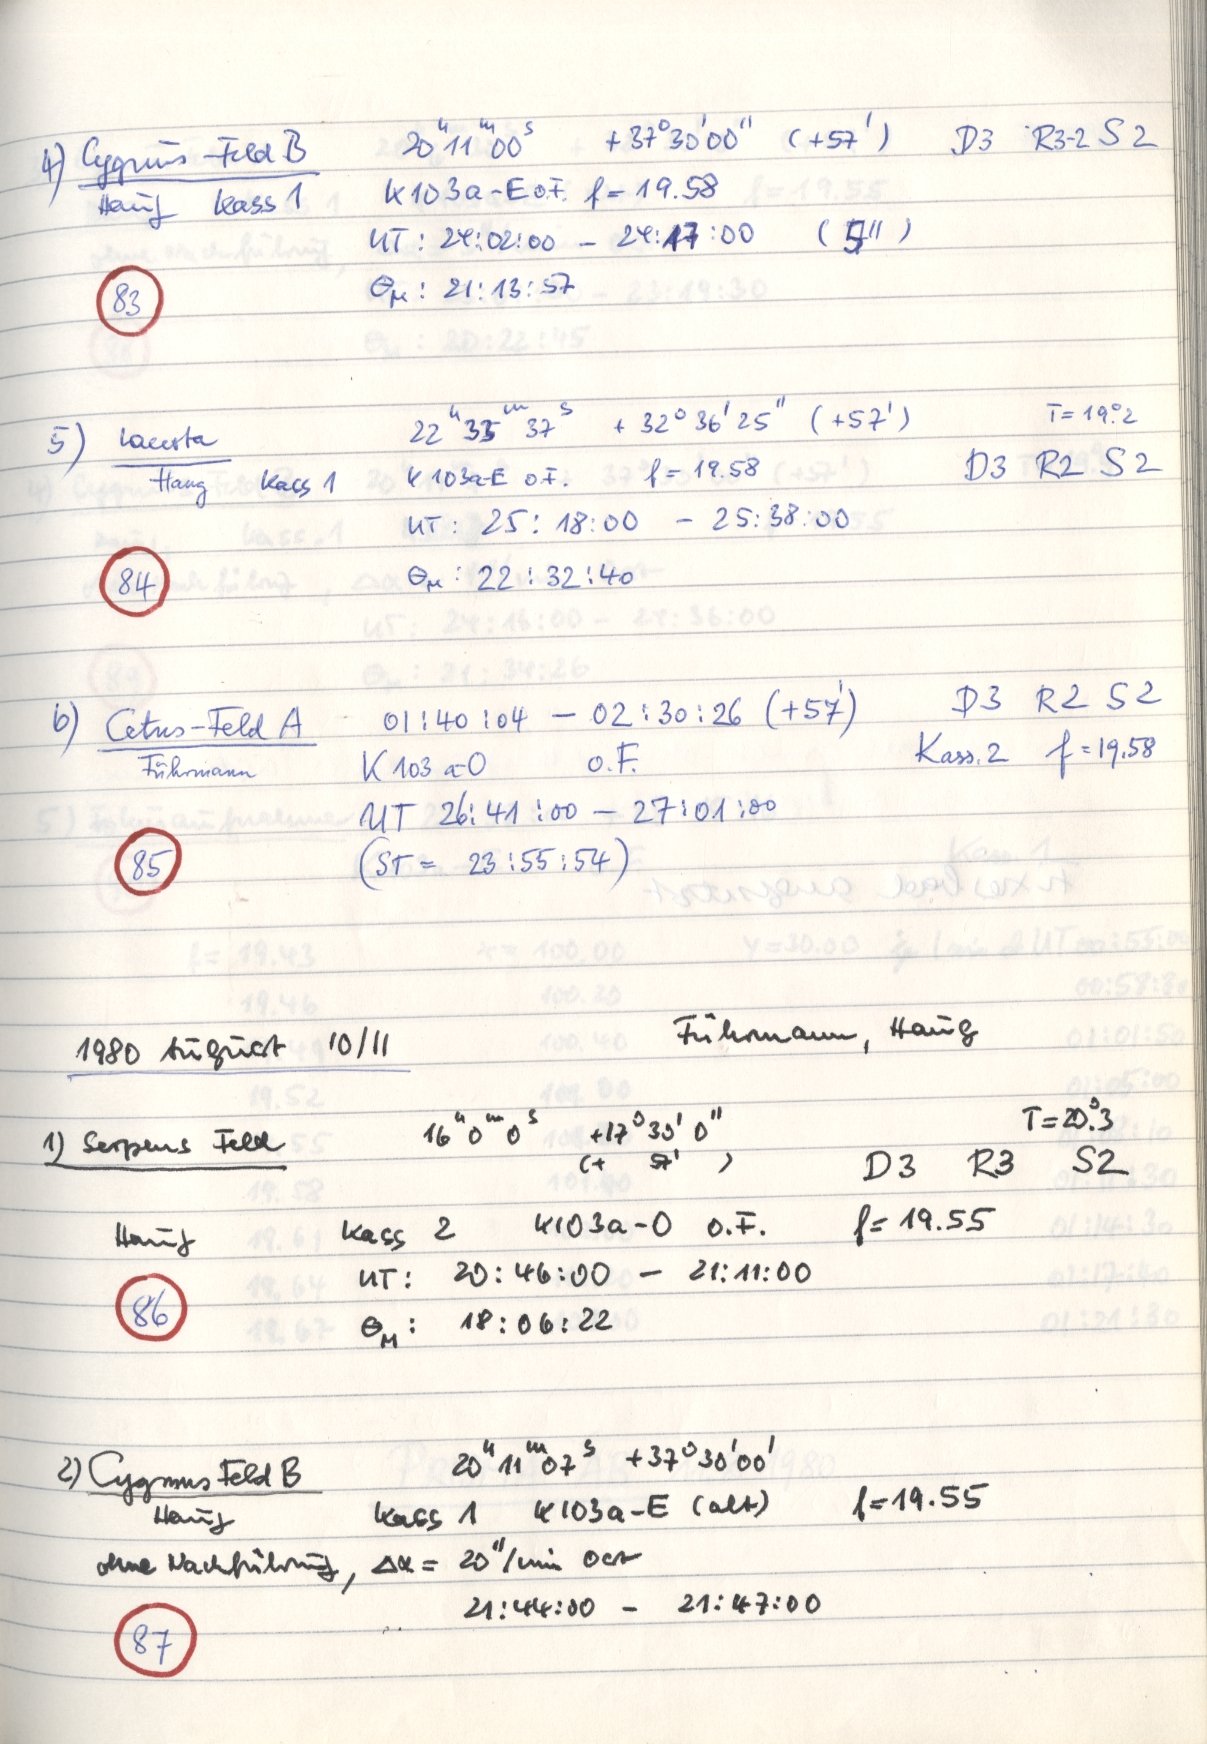 4) Cygnus-Feld B 20ʰ11ᵐ00ˢ +37°30'00" (+57') D3 R3-2 S2
Haug Kass 1 K103a-E o.F. f=19.58
UT: 24:02:00 – 24:17:00 (5")
83 Θ_M: 21:13:57
5) Lacerta 22ʰ 35ᵐ 37ˢ +32° 36' 25" (+57') T=19°.2
Haug Kass 1 K103a-E o.F. f=19.58 D3 R2 S2
UT: 25:18:00 – 25:38:00
84 Θ_M: 22:32:40
6) Cetus-Feld A 01:40:04 – 02:30:26 (+57') D3 R2 S2
Führmann K103a-O o.F. Kass. 2 f=19.58
UT 26:41:00 – 27:01:00
85 (ST = 23:55:54)
1980 August 10/11 Führmann, Haug
1) Serpens Feld 16ʰ 0ᵐ 0ˢ +17° 30' 0" T=20°.3
(+ 57') D3 R3 S2
Haug Kass 2 K103a-O o.F. f=19.55
UT: 20:46:00 – 21:11:00
86 Θ_M: 18:06:22
2) Cygnus Feld B 20ʰ 11ᵐ 07ˢ +37°30'00'
Haug Kass 1 K103a-E (alt) f=19.55
ohne Nachführung, Δα = 20"/min Ost
21:44:00 – 21:47:00
87